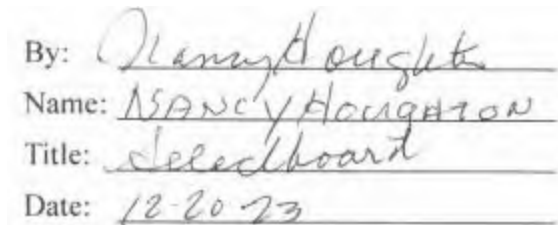 By: Nancy Houghton
Name: NANCY HOUGHTON
Title: Selectboard
Date: 12-20-23